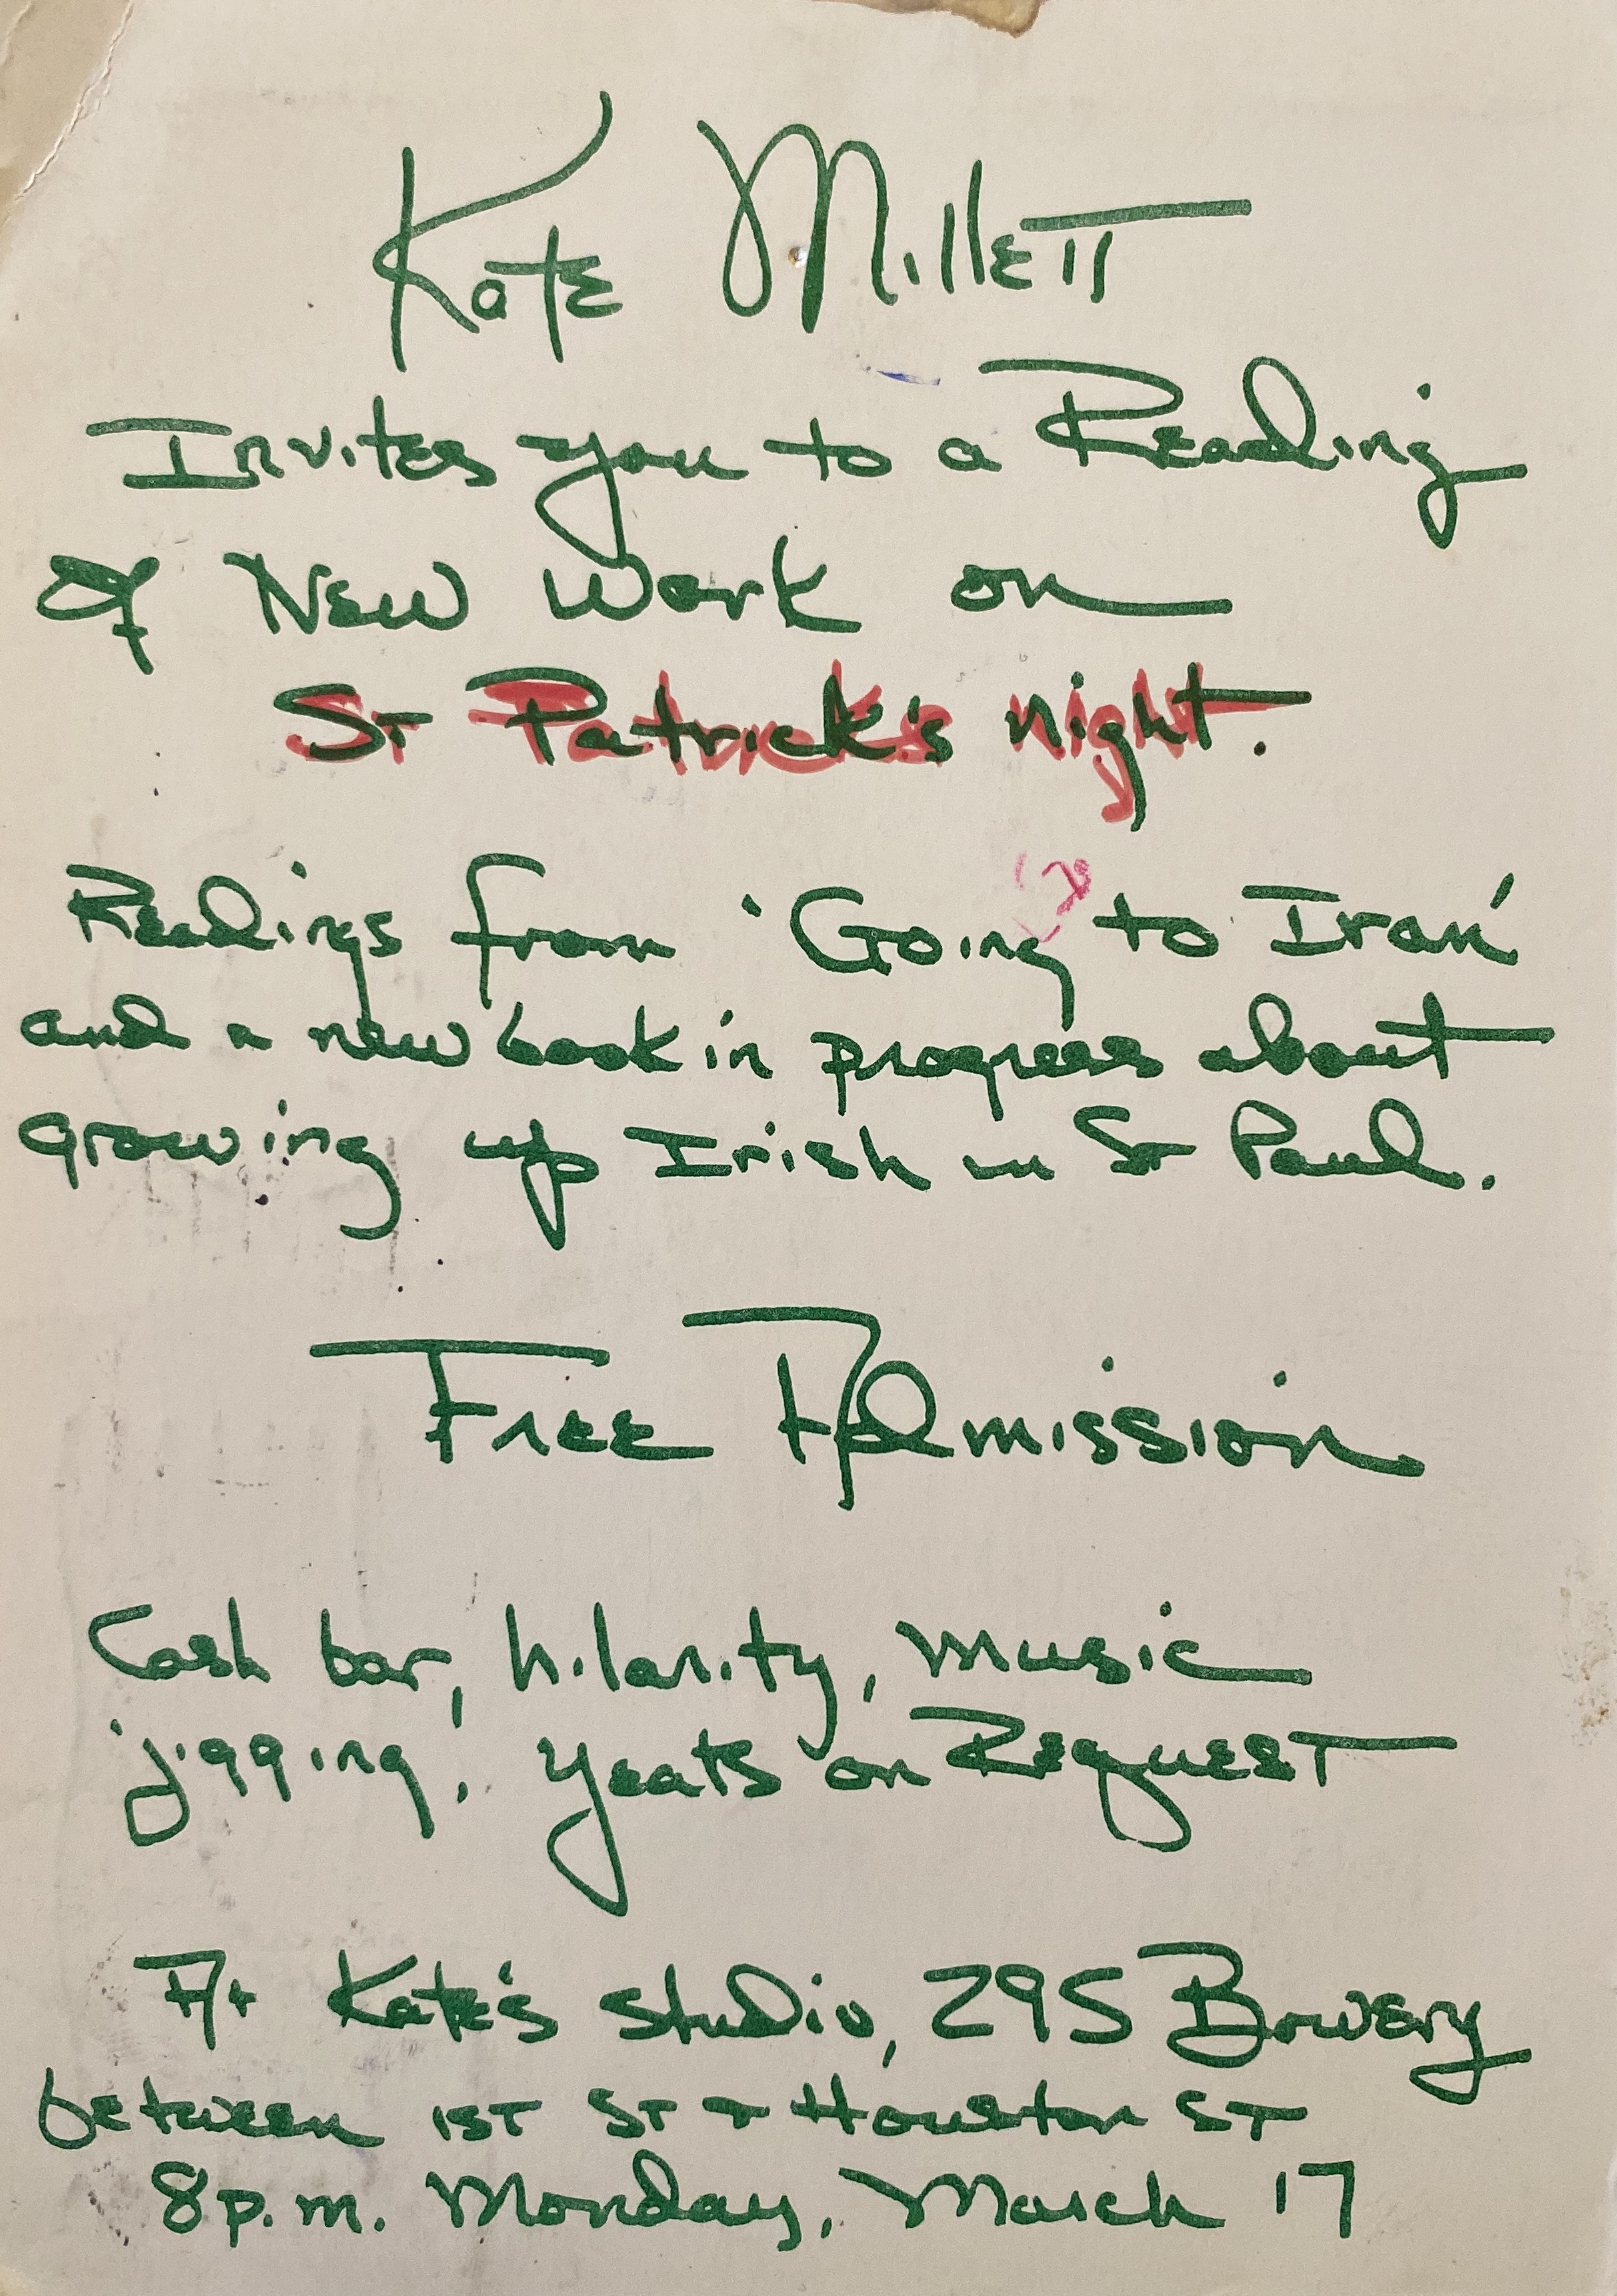 Kate Millett
Invites you to a Reading
of New Work on
St Patrick's night.
Readings from 'Going to Iran'
and a new book in progress about
growing up Irish in St Paul.
Free Admission
Cash bar, hilarity, music
'jigging', Yeats on Request
At Kate's studio, 295 Bowery
between 1st St + Houston St
8 p.m. Monday, March 17